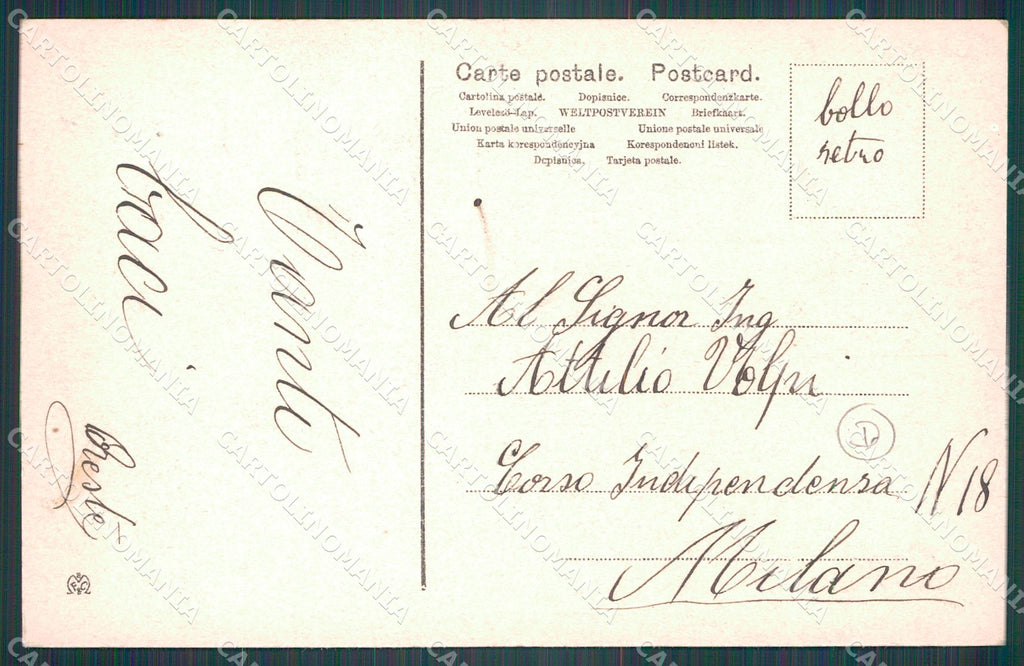 Carte postale. Postcard.
Cartolina postale. Dopisnice. Correspondenzkarte.
Levelező-Lap. WELTPOSTVEREIN Briefkaart.
Union postale universelle Unione postale universale
Karta korespondencyjna Korespondencni listek.
Dopisnica. Tarjeta postale.
bollo
retro
Al Signor Ing
Attilio Volpi
Corso Indipendenza N 18
Milano
Tanti
baci
Oreste
CARTOLINOMANIA